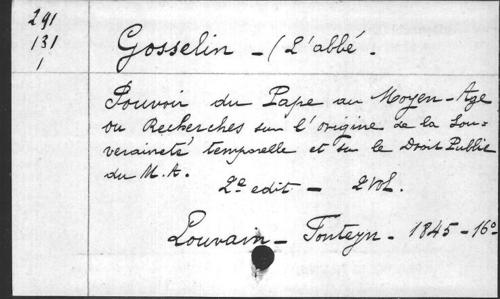 291
131
1
Gosselin - (L'abbé.
Pouvoir du Pape au Moyen-Age
ou Recherches sur l'origine de la Sou=
veraineté temporelle et sur le Droit Public
du M.A.
2e edit - 2 vol.
Louvain - Fonteyn - 1845 - 16º